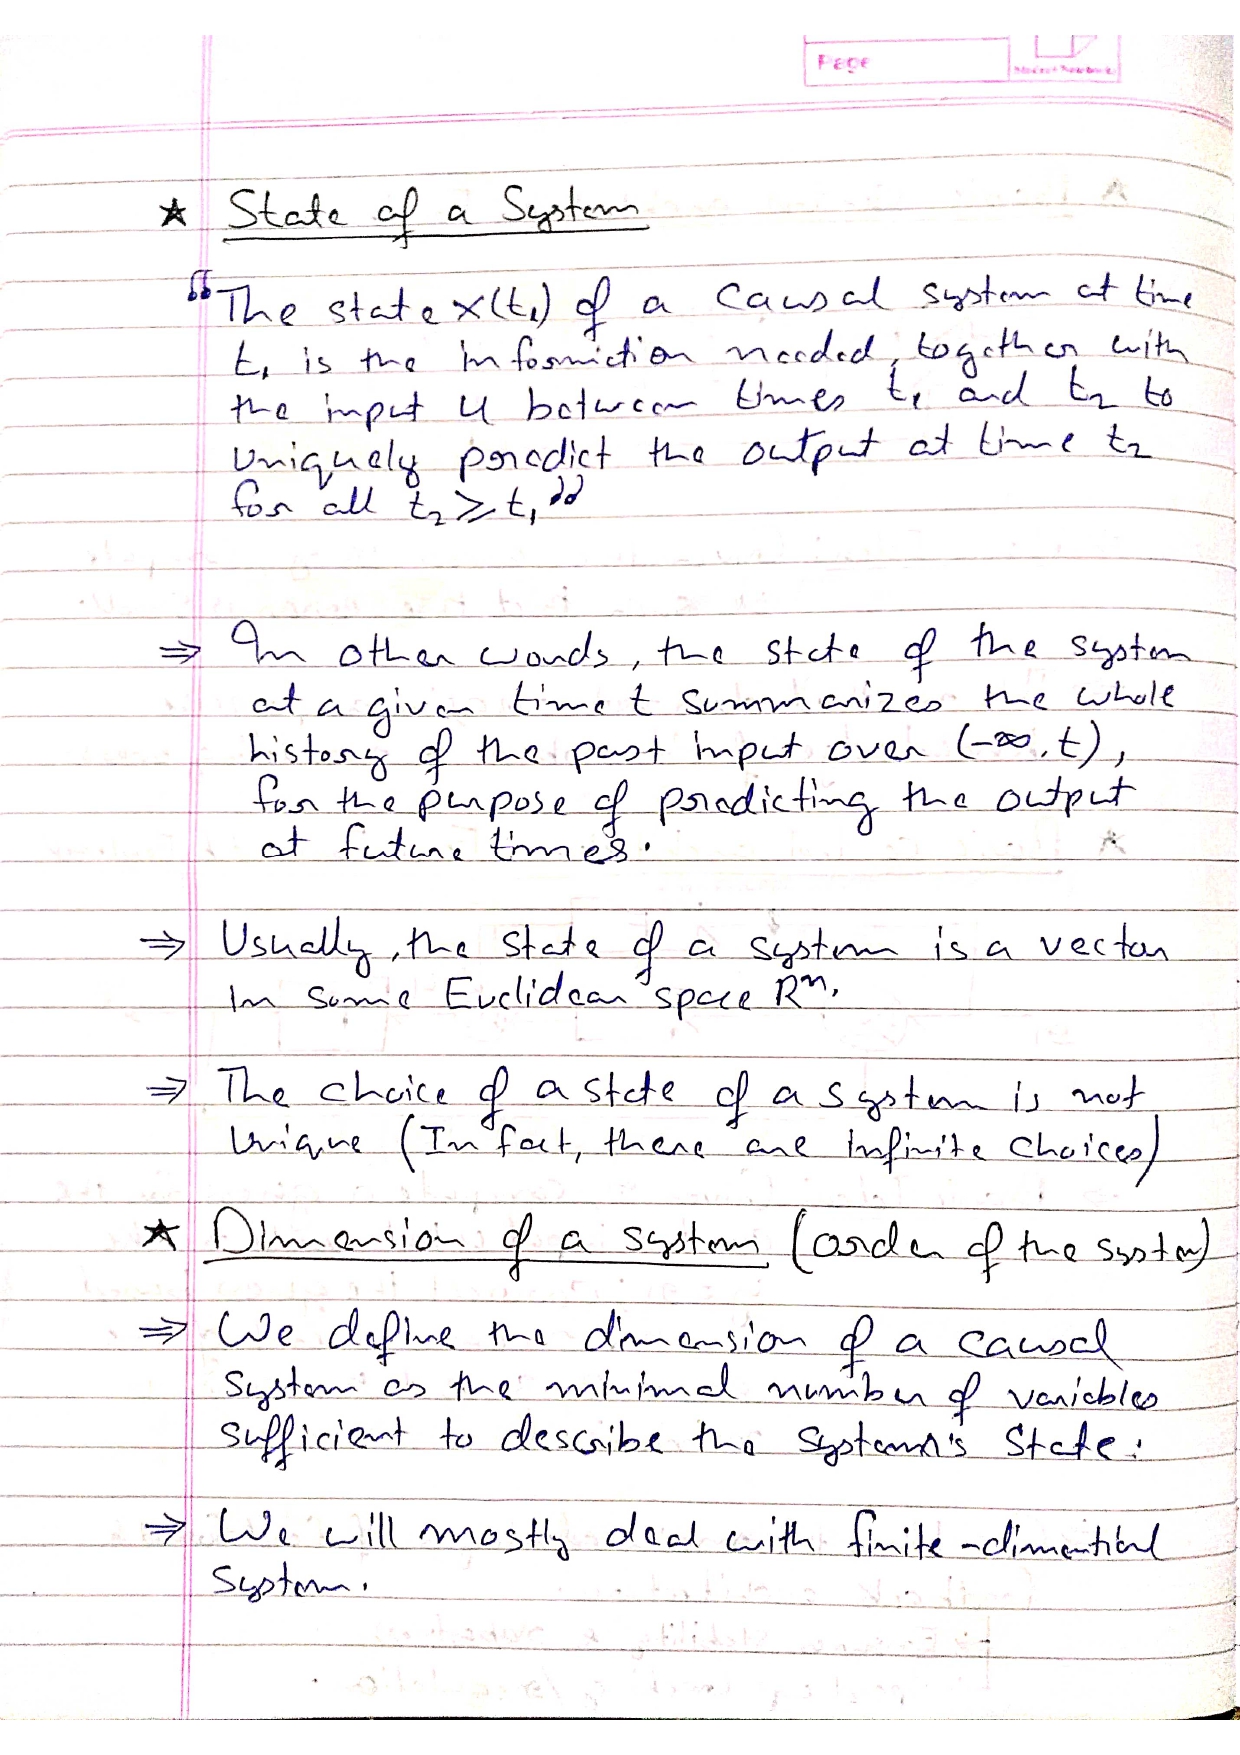 Page
★ State of a System
"The state x(t₁) of a causal system at time
t₁ is the information needed, together with
the input u between times t₁ and t₂ to
uniquely predict the output at time t₂
for all t₂ ⩾ t₁"
⇒ In other words, the state of the system
at a given time t summarizes the whole
history of the past input over (-∞, t),
for the purpose of predicting the output
at future times.
⇒ Usually, the state of a system is a vector
in some Euclidean space Rⁿ.
⇒ The choice of a state of a system is not
unique (In fact, there are infinite choices)
★ Dimension of a system (order of the system)
⇒ We define the dimension of a causal
system as the minimal number of variables
sufficient to describe the system's state.
⇒ We will mostly deal with finite-dimentional
system.